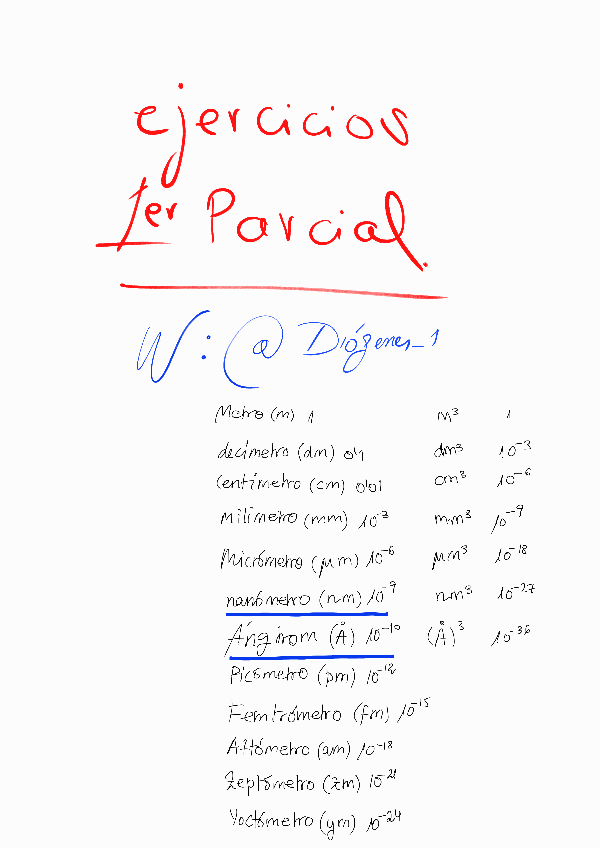 ejercicios
1er Parcial.
W: @Diógenes_1
Metro (m) 1 m³ 1
decímetro (dm) 0'1 dm³ 10⁻³
Centímetro (cm) 0'01 cm³ 10⁻⁶
milímetro (mm) 10⁻³ mm³ 10⁻⁹
Micrómetro (μm) 10⁻⁶ μm³ 10⁻¹⁸
nanómetro (nm) 10⁻⁹ nm³ 10⁻²⁷
Ángirom (Å) 10⁻¹⁰ (Å)³ 10⁻³⁶
Picómetro (pm) 10⁻¹²
Femtrómetro (fm) 10⁻¹⁵
Attómetro (am) 10⁻¹⁸
Zeptómetro (zm) 10⁻²¹
Yoctómetro (ym) 10⁻²⁴